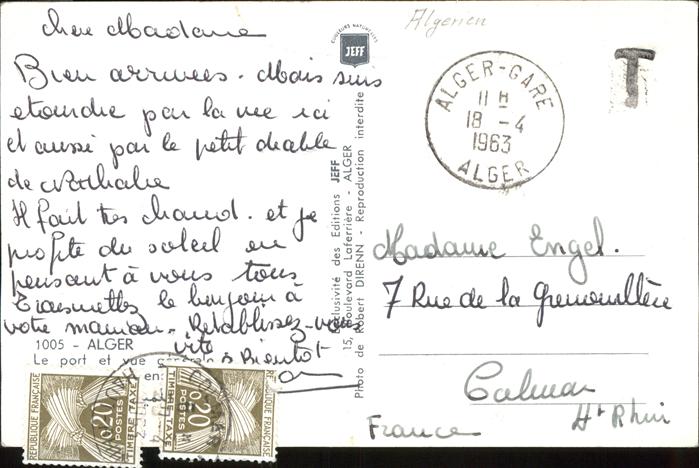 Chère Madame
Bien arrivées. Mais suis
etendre par la vie ici
et aussi par le petit diable
de Nathalie
Il fait très chaud. et je
profite du soleil en
pensant à vous tous
Transmettez le bonjour à
votre maman. Rétablissez-vous
vite
à Bientot
1005 - ALGER
Le port et vue générale
en:
COULEURS NATURELLES
JEFF
Exclusivité des Editions JEFF
15, Boulevard Laferrière - ALGER
Photo de Robert DIRENN - Reproduction interdite
Algerien
ALGER-GARE
11 H
18 - 4
1963
ALGER
T
Madame Engel.
7 Rue de la Grenouillère
Colmar
Ht Rhin
France
REPUBLIQUE FRANÇAISE
0,20
POSTES
TIMBRE TAXE
REPUBLIQUE FRANÇAISE
0,20
POSTES
TIMBRE TAXE